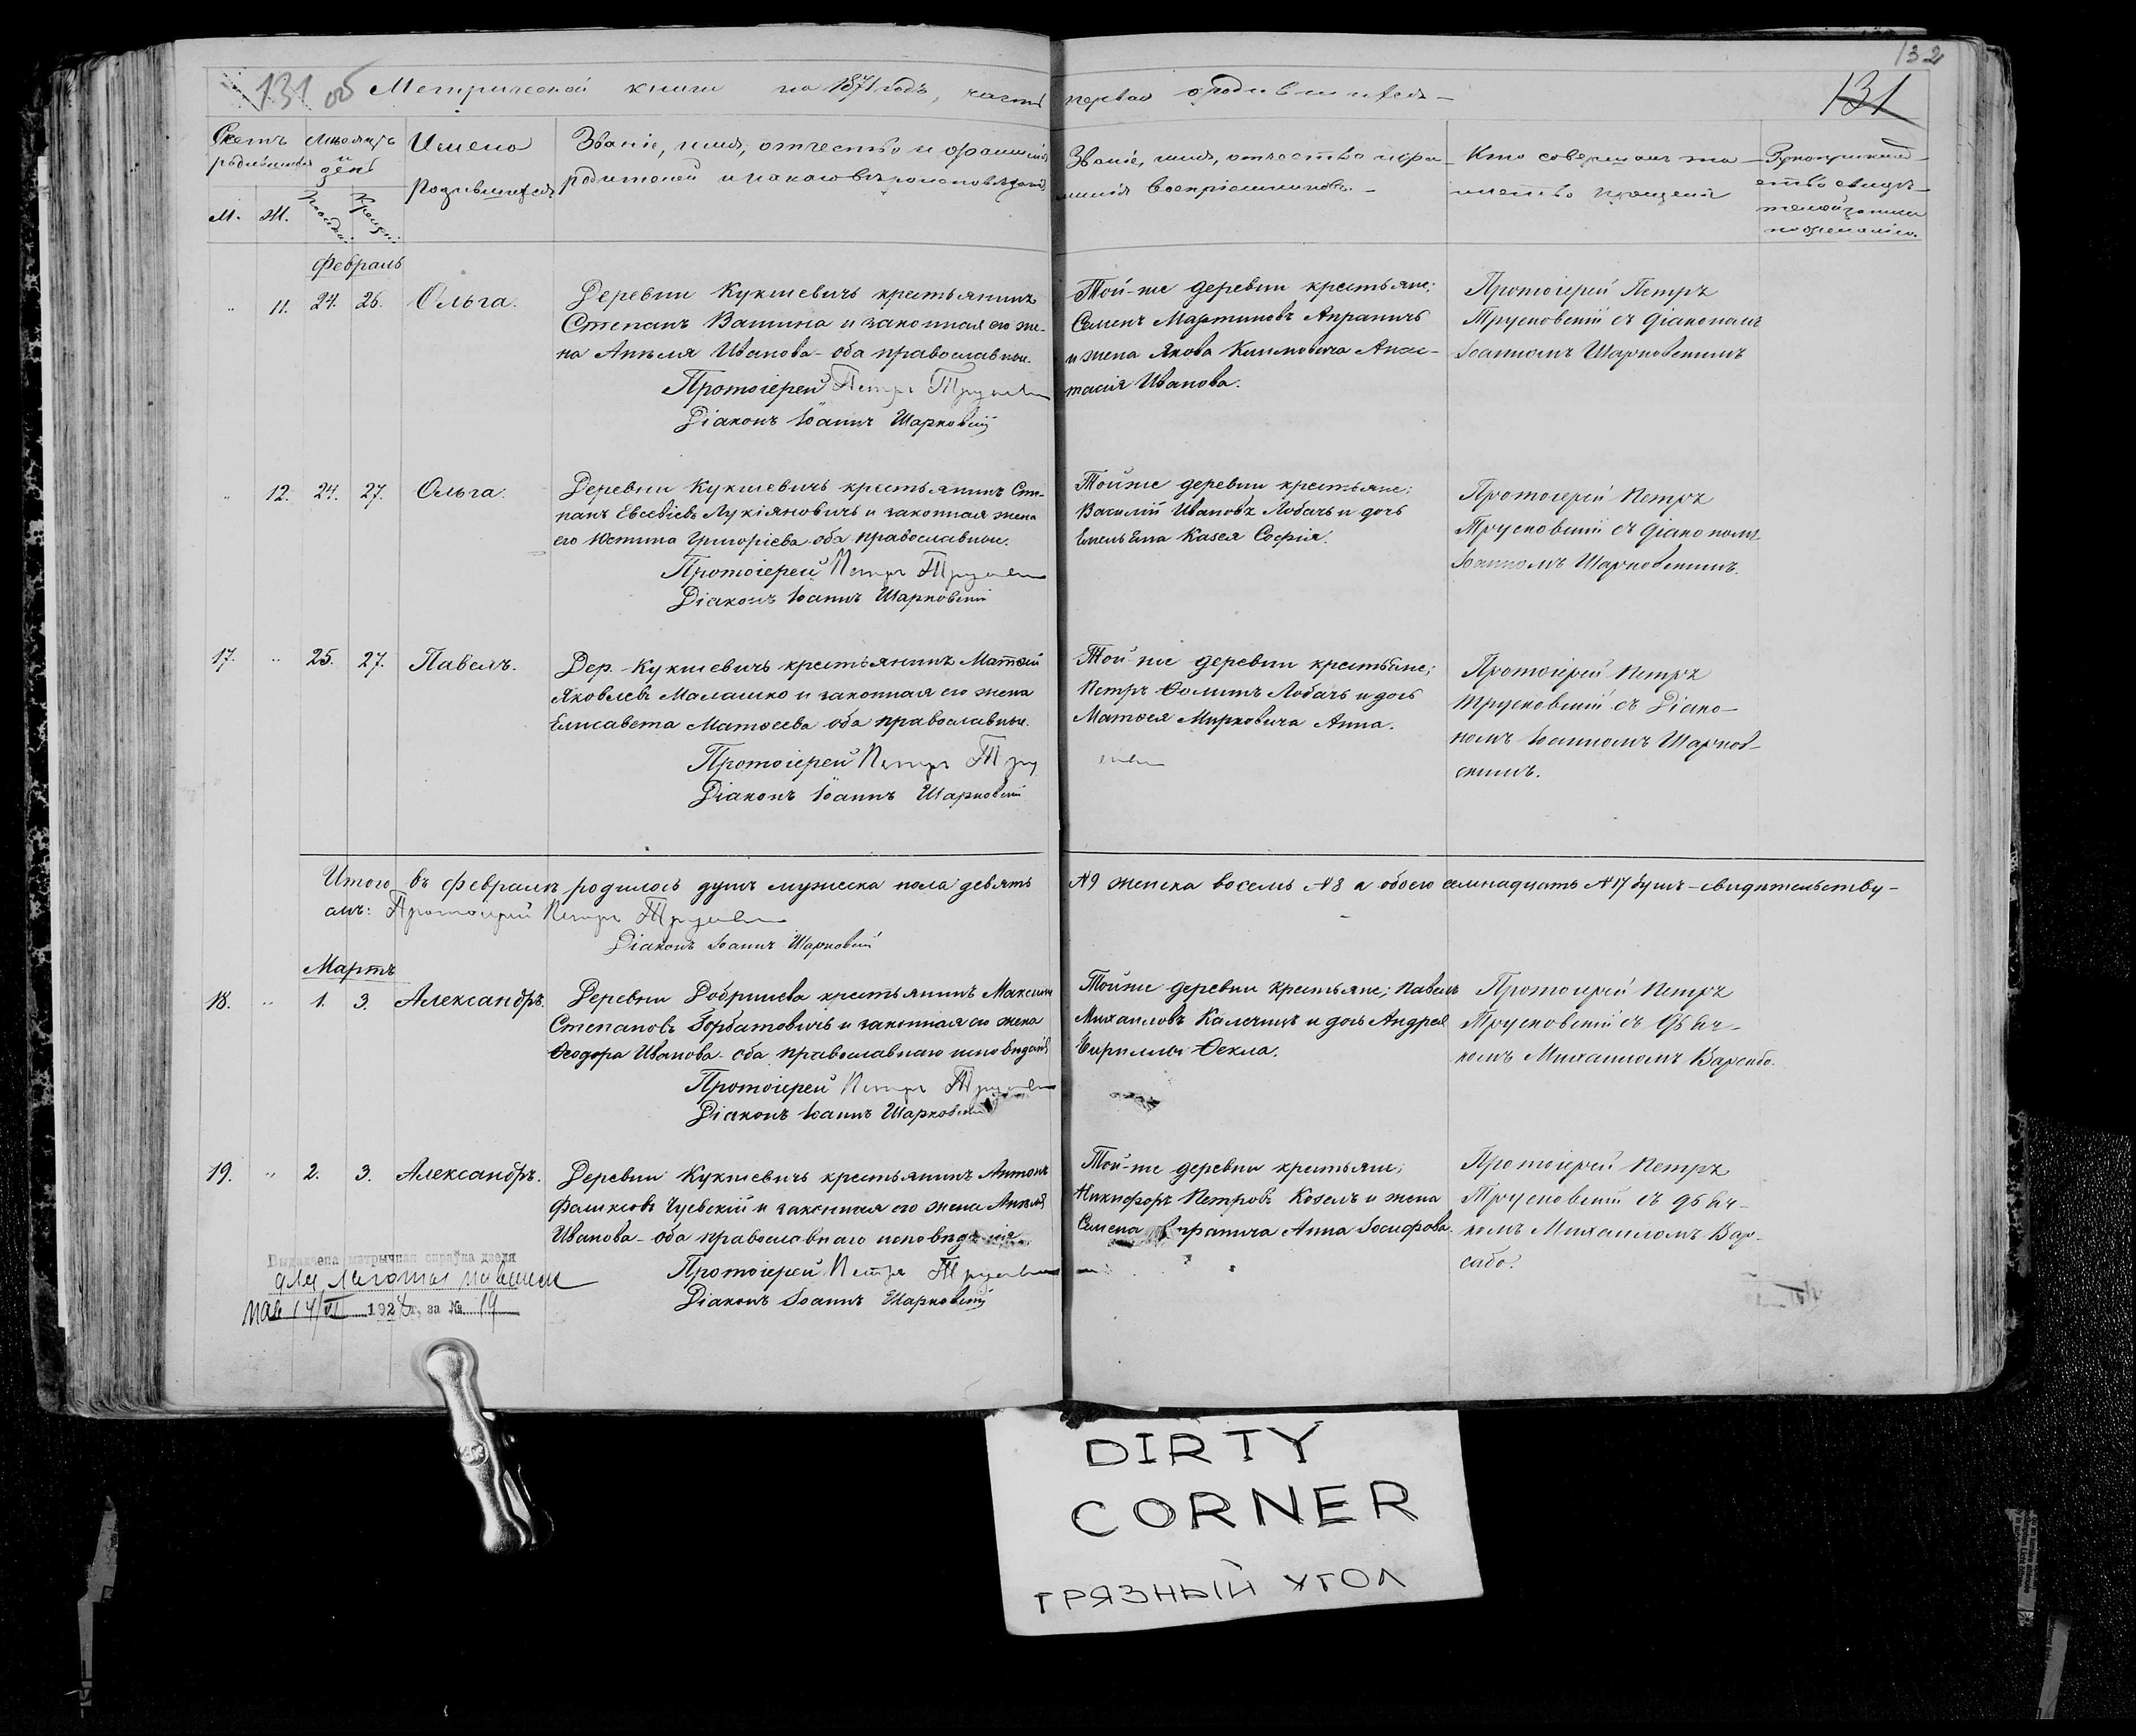 131 об Метрической книги на 1871 годъ, часть первая о родившихся
132
131
Счетъ родившихся
Мѣсяцъ и день
Имена родившихся
Званіе, имя, отчество и фамилія родителей и какого вѣроисповѣданія
Званіе, имя, отчество и фамилія воспріемниковъ.
Кто совершалъ таинство крещенія
Рукоприкладство свидѣтелей записи по желанію.
М. Ж.
Рожденія Крещенія
Февраль
" 11. 24. 26. Ольга.
Деревни Кукшевичь крестьянинъ
Степанъ Вашина и законная его же-
на Анѣля Иванова - оба православные.
Протоіерей Петръ Трусковскій
Діаконъ Іоаннъ Шарковскій
Той-же деревни крестьяне;
Семенъ Мартиновъ Апраничъ
и жена Якова Климовича Анас-
тасія Иванова.
Протоіерей Петръ
Трусковскій съ діакономъ
Іоанномъ Шарковскимъ
" 12. 24. 27. Ольга.
Деревни Кукшевичь крестьянинъ Сте-
панъ Евсевіевъ Лукіяновичъ и законная жена
его Юстина Григоріева оба православные.
Протоіерей Петръ Трусковскій
Діаконъ Іоаннъ Шарковскій
Тойже деревни крестьяне;
Василій Ивановъ Лобачъ и дочь
Емельяна Казея Софія.
Протоіерей Петръ
Трусковскій съ діакономъ
Іоанномъ Шарковскимъ.
17. " 25. 27. Павелъ.
Дер. Кукшевичь крестьянинъ Матѳей
Яковлевъ Малашко и законная его жена
Елисавета Матѳеева оба православные.
Протоіерей Петръ Трусковскій
Діаконъ Іоаннъ Шарковскій
Той-же деревни крестьяне;
Петръ Ѳоминъ Лобачъ и дочь
Матѳея Мирковича Анна.
Протоіерей Петръ
Трусковскій съ Діако-
номъ Іоанномъ Шарков-
скимъ.
Итого въ февралѣ родилось душъ мужеска пола девять №9 женска восемь №8 а обоего семнадцать №17 душъ - свидѣтельству-
емъ: Протоіерей Петръ Трусковскій
Діаконъ Іоаннъ Шарковскій
Мартъ
18. " 1. 3. Александръ.
Деревни Добринева крестьянинъ Максимъ
Степановъ Горбатовичъ и законная его жена
Ѳеодора Иванова - оба православнаго исповѣданія
Протоіерей Петръ Трусковскій
Діаконъ Іоаннъ Шарковскій
Тойже деревни крестьяне; Павелъ
Михаиловъ Калечицъ и дочь Андрея
Кириллы Ѳекла.
Протоіерей Петръ
Трусковскій съ дьяч-
комъ Михаиломъ Варсабо.
19. " 2. 3. Александръ.
Деревни Кукшевичь крестьянинъ Антонъ
Фаликсовъ Чуевскій и законная его жена Анѣля
Иванова - оба православнаго исповѣданія.
Протоіерей Петръ Трусковскій
Діаконъ Іоаннъ Шарковскій
Той-же деревни крестьяне;
Никифоръ Петровъ Козелъ и жена
Семена Апранича Анна Іосифова.
Протоіерей Петръ
Трусковскій съ дьяч-
комъ Михаиломъ Вар-
сабо.
Выдадзена мэтрычная спраўка дзеля
1928 г, за № 19
DIRTY
CORNER
ГРЯЗНЫЙ УГОЛ